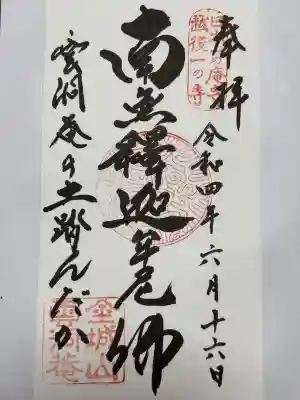 奉拝
越後一の寺
令和四年六月十六日
南無釋迦牟尼佛
雲洞庵の土踏んだか
金城山
雲洞庵